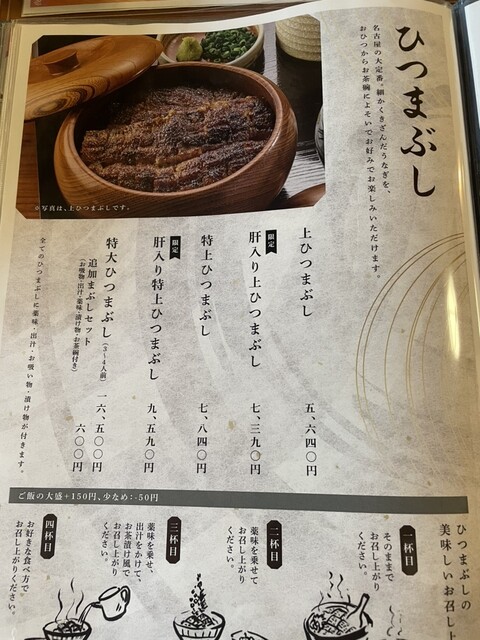 ひつまぶし
名古屋の大定番。細かくきざんだうなぎを、
おひつからお茶碗によそいでお好みでお楽しみいただけます。
※写真は、上ひつまぶしです。
上ひつまぶし 五、六四〇円
限定
肝入り上ひつまぶし 七、三九〇円
特上ひつまぶし 七、八四〇円
限定
肝入り特上ひつまぶし 九、五九〇円
特大ひつまぶし(3〜4人前) 一六、五〇〇円
追加まぶしセット 六〇〇円
(お吸物・出汁・薬味・漬け物・お茶碗付き)
全てのひつまぶしに薬味・出汁・お吸い物・漬け物が付きます。
ご飯の大盛+150円、少なめ:-50円
ひつまぶしの
美味しいお召し上
一杯目
そのままで
お召し上がり
ください。
二杯目
薬味を乗せて
お召し上がり
ください。
三杯目
薬味を乗せ、
出汁をかけて、
お茶漬け風で
お召し上がり
ください。
四杯目
お好きな食べ方で
お召し上がりください。